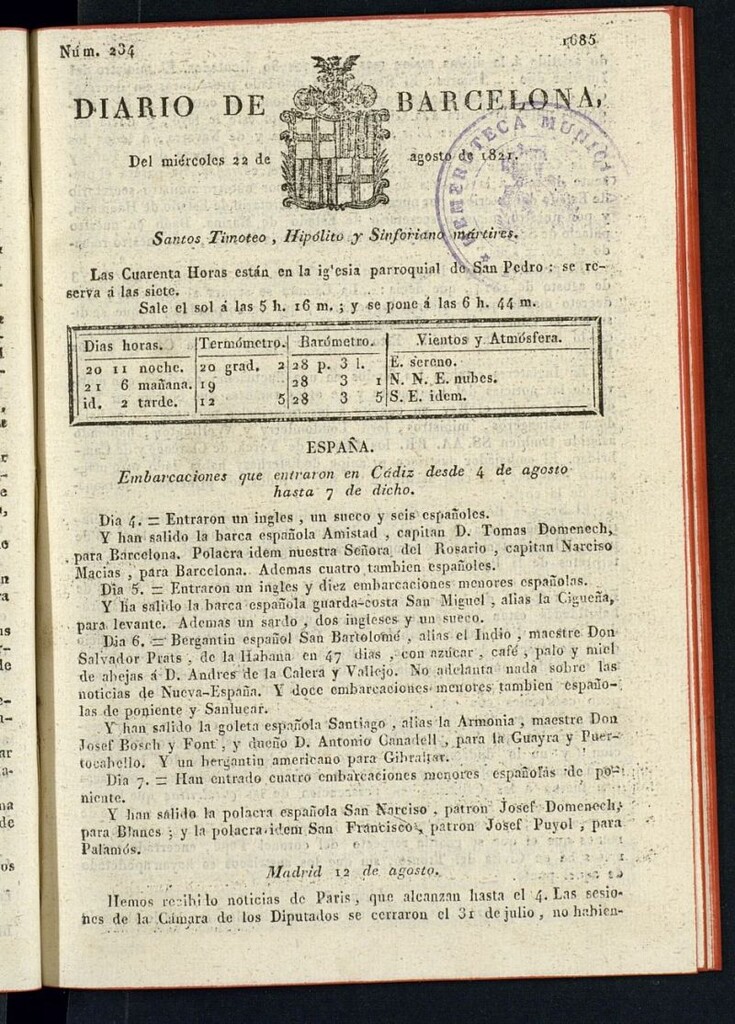 Núm. 234
1685
DIARIO DE BARCELONA,
Del miércoles 22 de agosto de 1821.
HEMEROTECA MUNICI
Santos Timoteo , Hipólito y Sinforiano mártires.
Las Cuarenta Horas están en la iglesia parroquial de San Pedro : se re-
serva á las siete.
Sale el sol á las 5 h. 16 m. ; y se pone á las 6 h. 44 m.
Dias horas. Termómetro. Barómetro. Vientos y Atmósfera.
20 11 noche. 20 grad. 2 28 p. 3 l. E. sereno.
21 6 mañana. 19 28 3 1 N. N. E. nubes.
id. 2 tarde. 12 5 28 3 5 S. E. idem.
ESPAÑA.
Embarcaciones que entraron en Cádiz desde 4 de agosto
hasta 7 de dicho.
Dia 4. = Entraron un ingles , un sueco y seis españoles.
Y han salido la barca española Amistad , capitan D. Tomas Domenech,
para Barcelona. Polacra idem nuestra Señora del Rosario , capitan Narciso
Macias , para Barcelona. Ademas cuatro tambien españoles.
Dia 5. = Entraron un ingles y diez embarcaciones menores españolas.
Y ha salido la barca española guarda-costa San Miguel , alias la Cigueña,
para levante. Ademas un sardo , dos ingleses y un sueco.
Dia 6. = Bergantin español San Bartolomé , alias el Indio , maestre Don
Salvador Prats , de la Habana en 47 dias , con azúcar , café , palo y miel
de abejas á D. Andres de la Calera y Vallejo. No adelanta nada sobre las
noticias de Nueva-España. Y doce embarcaciones menores tambien españo-
las de poniente y Sanlucar.
Y han salido la goleta española Santiago , alias la Armonia , maestre Don
Josef Bosch y Font , y dueño D. Antonio Canadell , para la Guayra y Puer-
tocabello. Y un bergantin americano para Gibraltar.
Dia 7. = Han entrado cuatro embarcaciones menores españolas de po-
niente.
Y han salido la polacra española San Narciso , patron Josef Domenech,
para Blanes ; y la polacra idem San Francisco , patron Josef Puyol , para
Palamós.
Madrid 12 de agosto.
Hemos recibido noticias de Paris , que alcanzan hasta el 4. Las sesio-
nes de la Cámara de los Diputados se cerraron el 31 de julio , no habien-